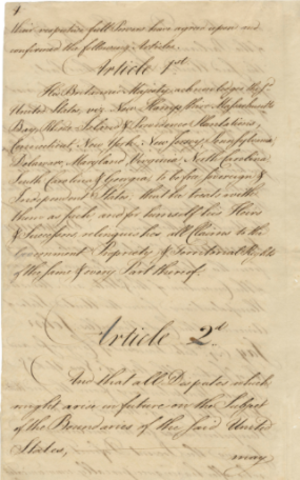 4.
their respective full Powers have agreed upon and
confirmed the following Articles.
Article 1st
His Britannic Majesty acknowledges the sd.
United States, viz New Hampshire Massachusetts
Bay, Rhode Island & Providence Plantations,
Connecticut, New York, New Jersey Pennsylvania
Delaware, Maryland, Virginia, North Carolina
South Carolina & Georgia, to be free sovereign &
Independent States; that he treats with
them as such, and for himself his Heirs
& Successors, relinquishes all Claims to the
Government Propriety & Territorial Rights
of the same & every Part thereof.
Article 2d
And that all Disputes which
might arise in future on the Subject
of the Boundaries of the said United
States,
may